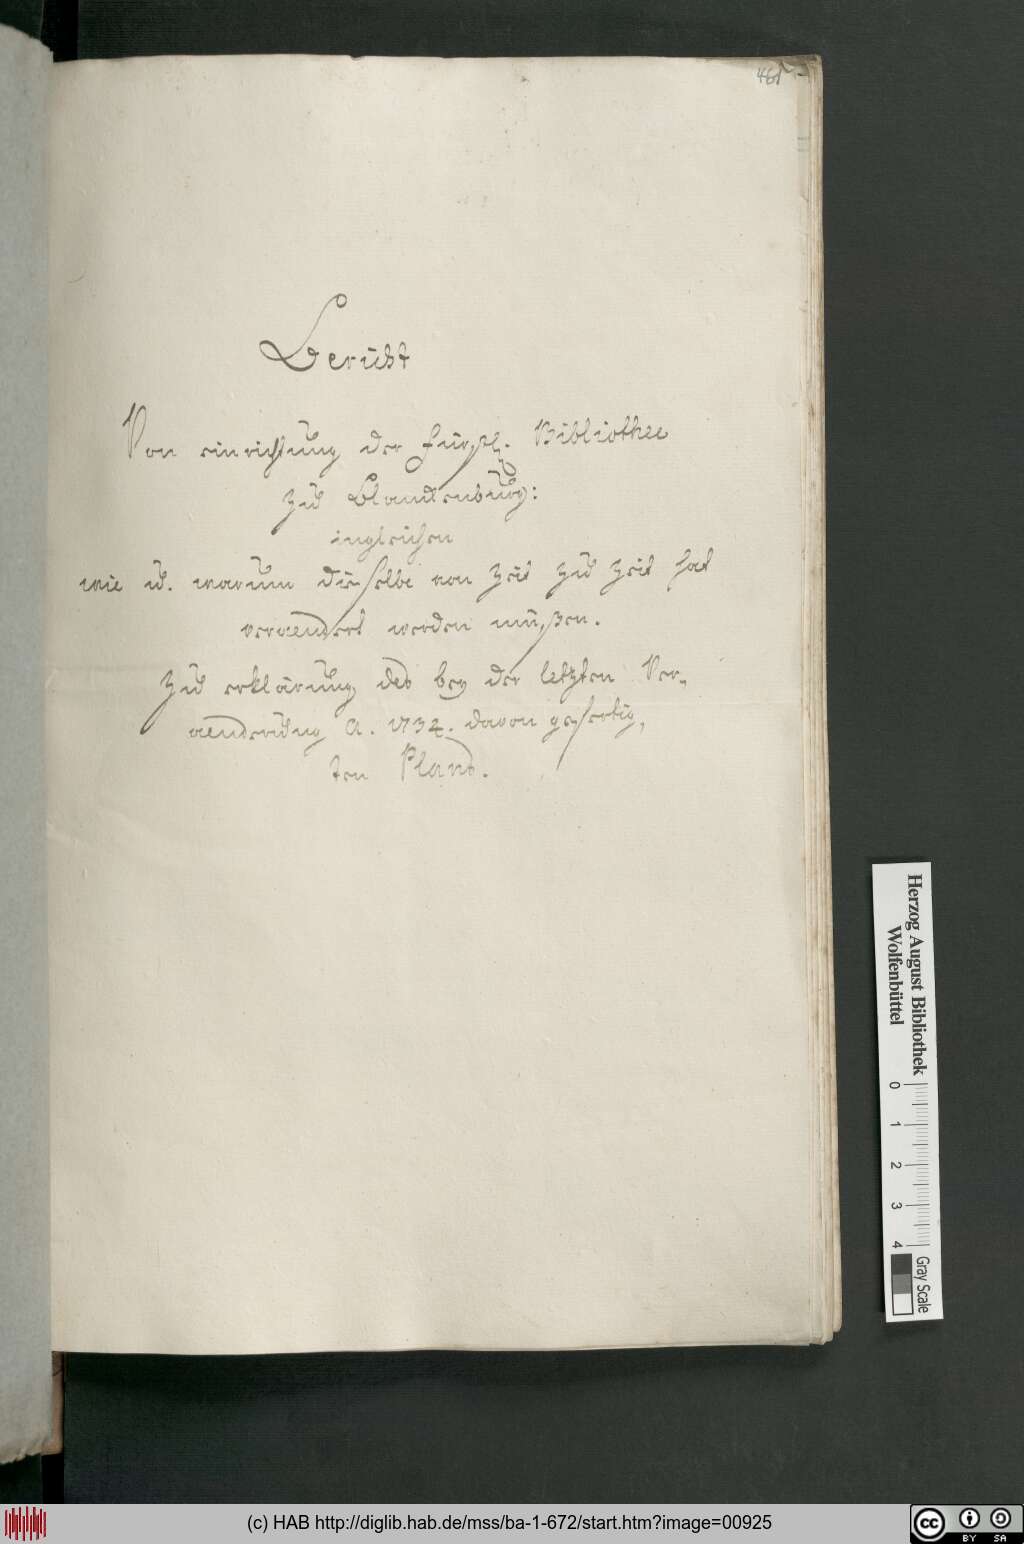 461
Bericht
Von einrichtung der Fürstl. Bibliothec
zu Blanckenburg:
ingleichen
wie u. warum dieselbe von Zeit zu Zeit hat
veraendert werden müßen.
Zu erklärung des bey der letzten Ver-
aenderung A. 1732. davon gefertig-
ten Plans.
Herzog August Bibliothek
Wolfenbüttel
0 1 2 3 4
Gray Scale
(c) HAB http://diglib.hab.de/mss/ba-1-672/start.htm?image=00925
cc BY SA